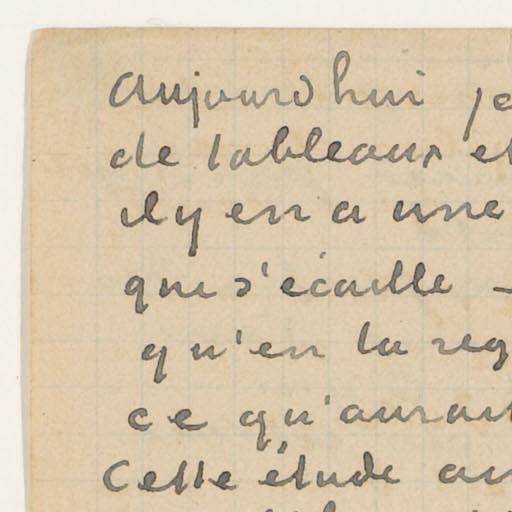 aujourd'hui je
de tableaux et
il y en a une
qui s'écaille –
qu'en la reg
ce qu'aurait
Cette étude au